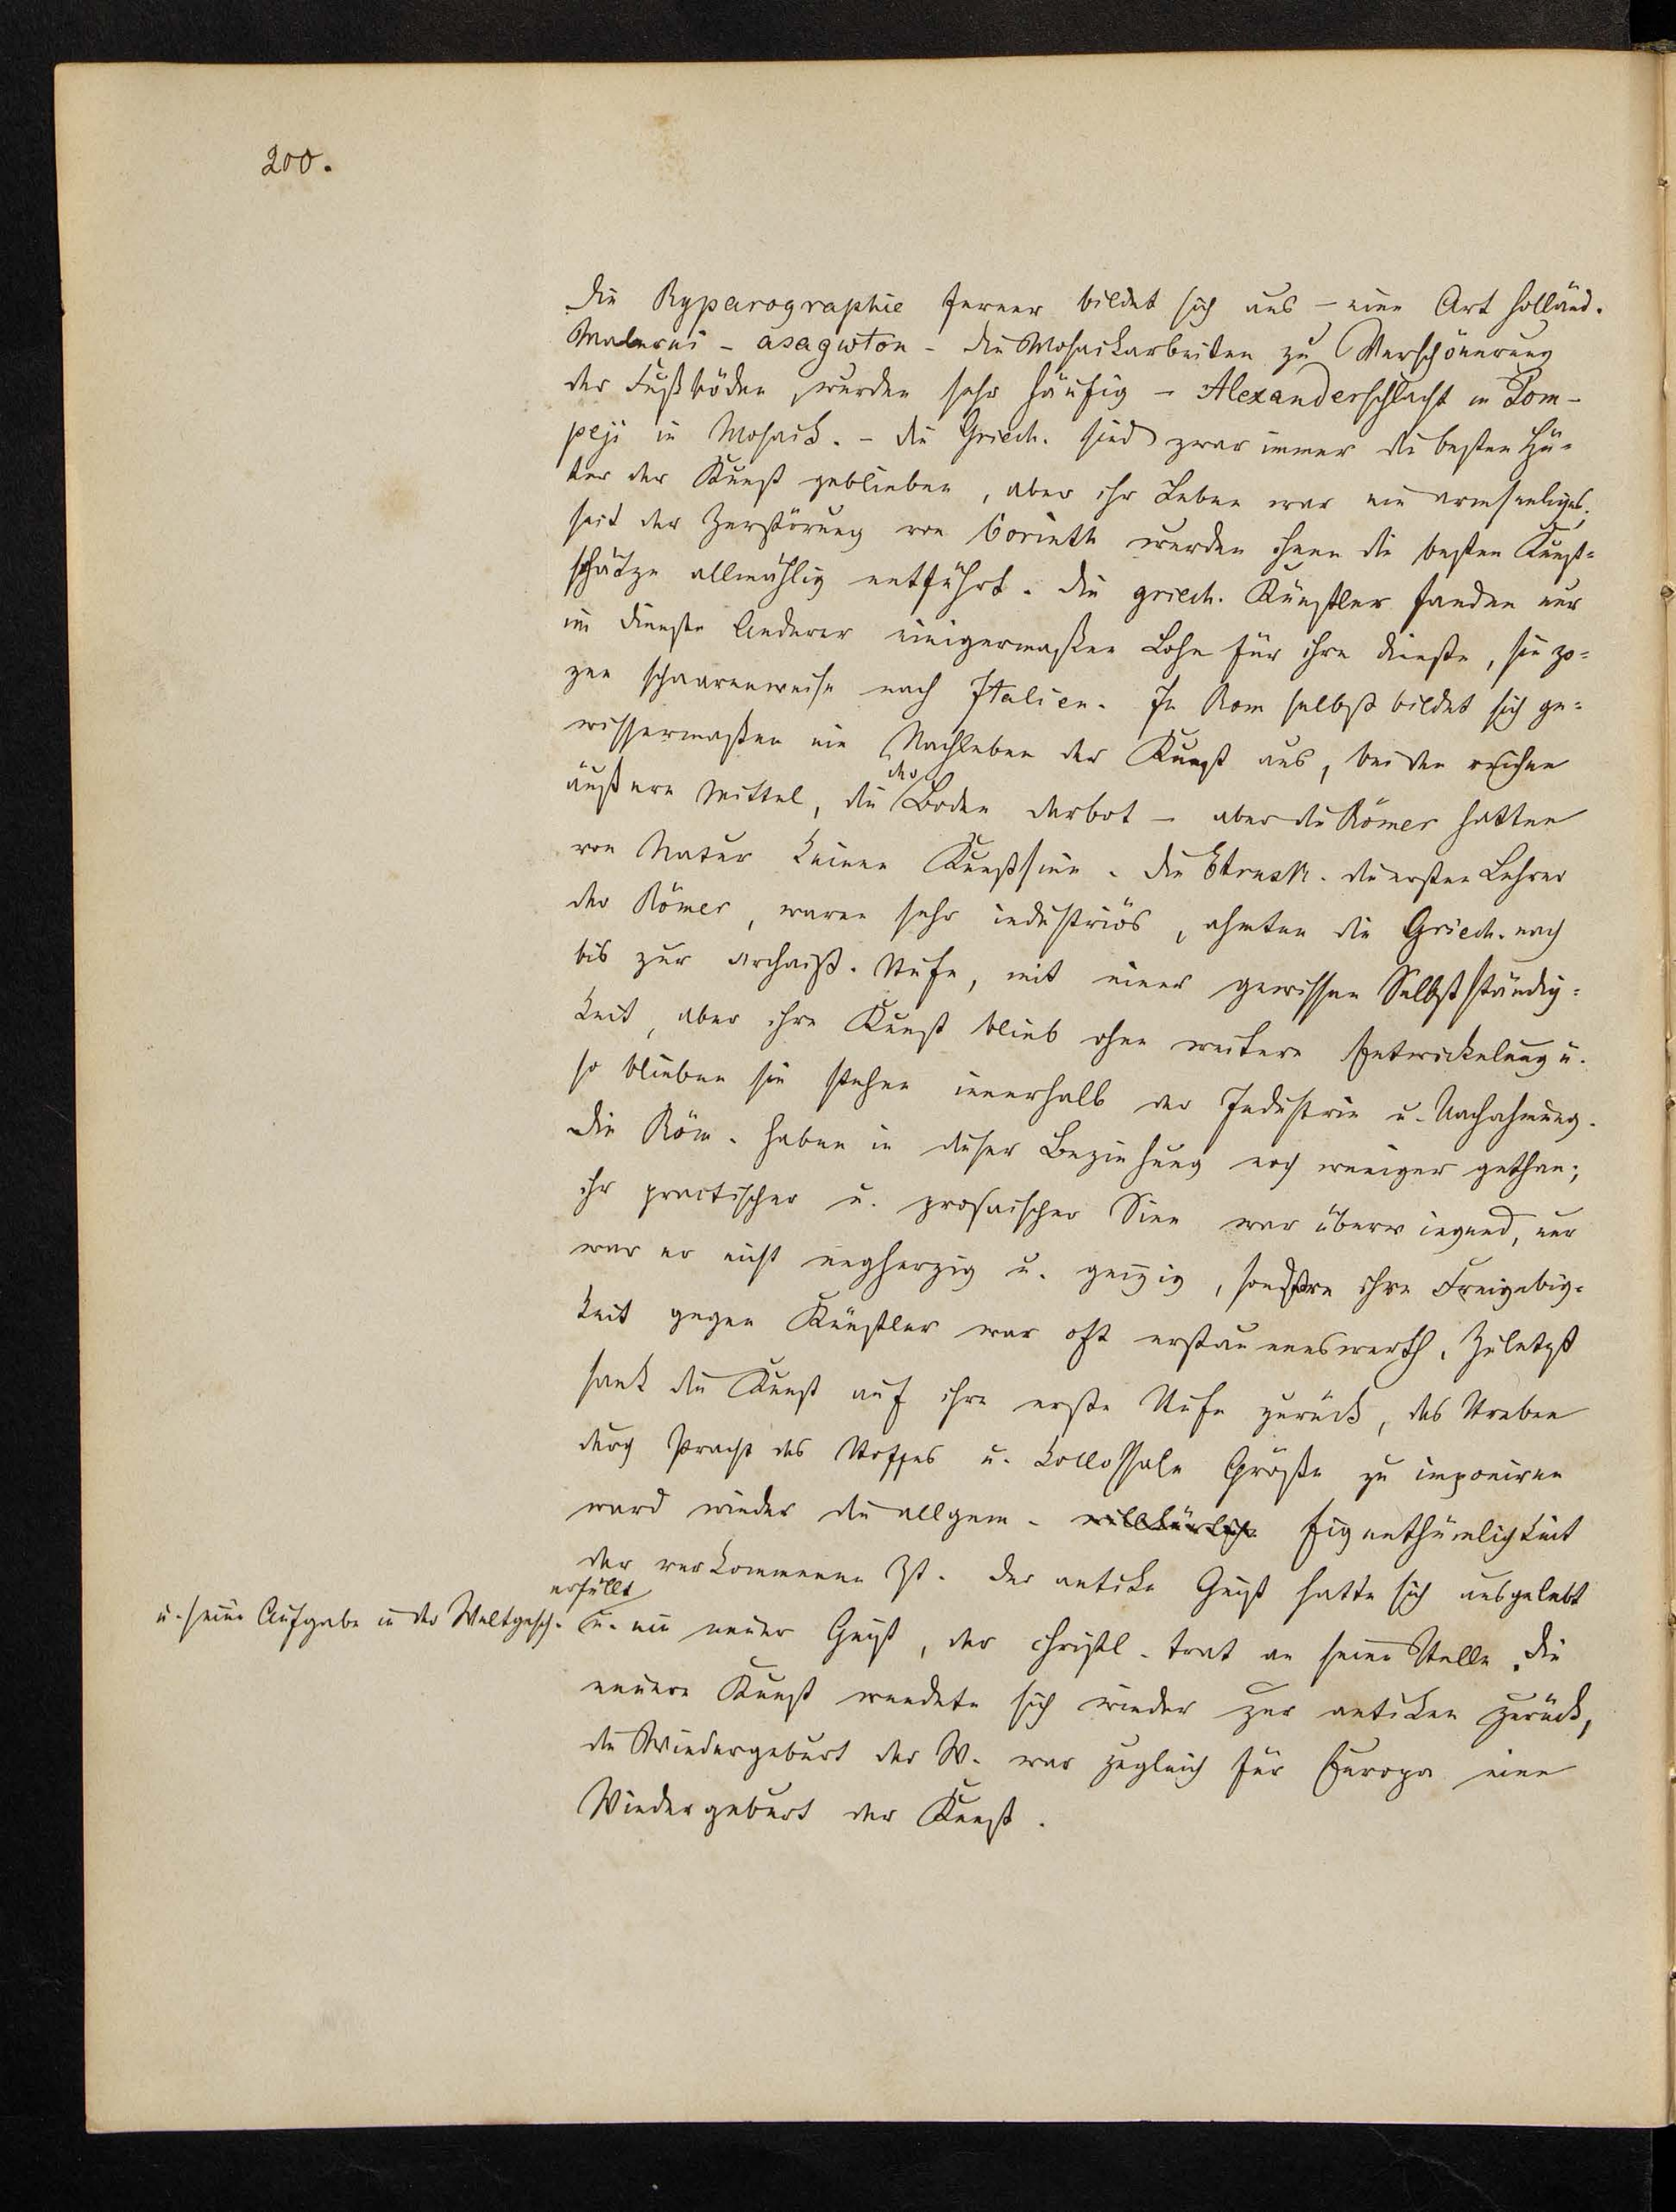 200.
Die Ryparographie ferner bildet sich aus – eine Art holländ.
Malerei – asagwton – die Mosaikarbeiten zu Verschönerung
der Fußböden, wurden sehr häufig – Alexanderschlacht in Pom-
peji in Mosaik. – die Griech. sind zwar immer die besten Hü-
ter der Kunst geblieben, aber ihr Leben war ein armseeliges.
seit der Zerstörung von Corinth wurden ihnen die besten Kunst-
schätze allmählig entführt. die griech. Künstler fanden nur
im Dienste Anderer einigermaßen Lohn für ihre Dienste, sie zo-
gen schaarenweise nach Italien. In Rom selbst bildet sich ge-
wissermaßen ein Nachleben der Kunst aus, bei den reichen
äußeren Mittel, die der Boden darbot – aber die Römer hatten
von Natur keinen Kunstsinn. die Etrusk. die ersten Lehrer
der Römer, waren sehr industriös, ahmten die Griech. nach
bis zur archaist. Stufe, mit einer gewissen Selbstständig-
keit, aber ihre Kunst blieb ohne weitere Entwickelung u.
so blieben sie stehen innerhalb der Industrie u. Nachahmung.
Die Röm. haben in dieser Beziehung noch weniger gethan;
ihr practischer u. prosaischer Sinn war überwiegend, nur
war er nicht engherzig u. geizig, sondern ihre Freigebig-
keit gegen Künstler war oft erstaunenswerth. Zuletzt
sank die Kunst auf ihre erste Stufe zurück, das Streben
durch Pracht des Stoffes u. kollossale Größe zu imponiren
ward wieder die allgem. willkürliche Eigenthümlichkeit
der verkommenen Zt. der antike Geist hatte sich ausgelebt
u. seine Aufgabe in der Weltgesch. erfüllt u. ein neuer Geist, der christl. trat an seine Stelle. die
neuere Kunst wendete sich wieder zur antiken zurück,
die Wiedergeburt der W. war zugleich für Europa eine
Wiedergeburt der Kunst.